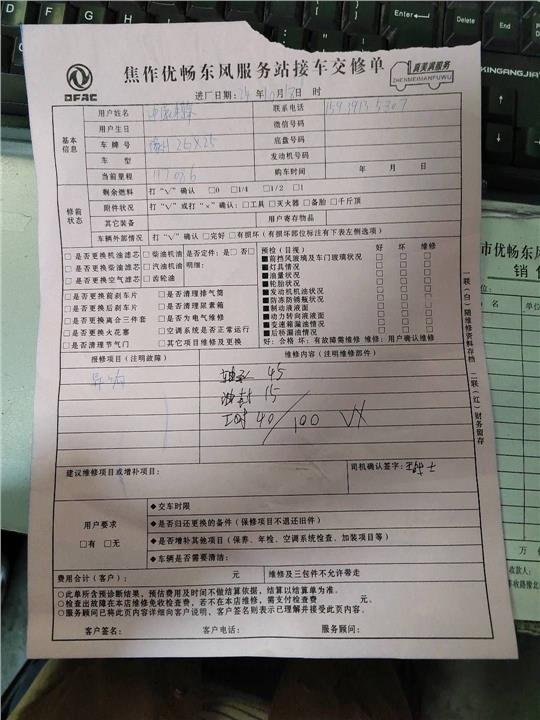 焦作优畅东风服务站接车交修单
DFAC
真美满服务
ZHENMEIMANFUWU
进厂日期：24 年 月 日 时
基本信息
用户姓名 联系电话
用户生日 微信号码
车牌号 26X25 底盘号码
车型 发动机号码
当前里程 117086 购车时间 年 月 日
修前状态
剩余燃料 打“√”确认 □0 □1/4 □1/2 □1
附件状况 打“√”或打“×”确认：□工具 □灭火器 □备胎 □千斤顶
其它装备 用户寄存物品
车辆外部情况 打“√”确认 □完好 □有损坏（有损坏部位标注有下表左侧选项）
□是否更换机油滤芯 □柴油机油 是否定件：□是 □否
□是否更换柴油滤芯 □汽油机油 明细：
□是否更换空气滤芯 □齿轮油
□是否更换前刹车片 □是否清理排气筒
□是否更换后刹车片 □是否清理尿素箱
□是否更换离合三件套 □是否为电气维修
□是否更换火花塞 □空调系统是否正常运行
□是否清理节气门 □其它项目维修及更换
预检（目视） 好 坏 维修
■前挡风玻璃及车门玻璃状况 □ □ □
■灯具情况 □ □ □
■油量状况 □ □ □
■轮胎状况 □ □ □
■发动机机油状况 □ □ □
■防冻防锈瓶状况 □ □ □
■制动液液面 □ □ □
■动力转向液液面 □ □ □
■变速箱漏油情况 □ □ □
■后桥漏油情况 □ □ □
好：合格 坏：有故障需维修 维修：用户确认维修
报修项目（注明故障） 维修内容（注明维修部件）
异响
轴承 45
油封 15
工时 40/100 VX
建议维修项目或增补项目： 司机确认签字：
用户要求
□有 □无
◆交车时限
◆是否归还更换的备件（保修项目不退还旧件）
◆是否增补其他项目（保养、年检、空调系统检查、加装项目等）
◆车辆是否需要清洁：
费用合计（客户）： 元 维修及三包件不允许带走
○此单所含预诊断结果，预估费用及时间不做结算依据，结算以结算单为准。
○检查出故障在本店维修免收检查费，若不在本店维修，需支付检查费 元。
○服务顾问已将此页内容详细向客户说明，客户签名则表示已理解并接受此页内容。
客户签名： 客户电话： 服务顾问：
一联（白）随维修资料存档 二联（红）财务留存
市优畅东风
销售
单位
万
收款人：